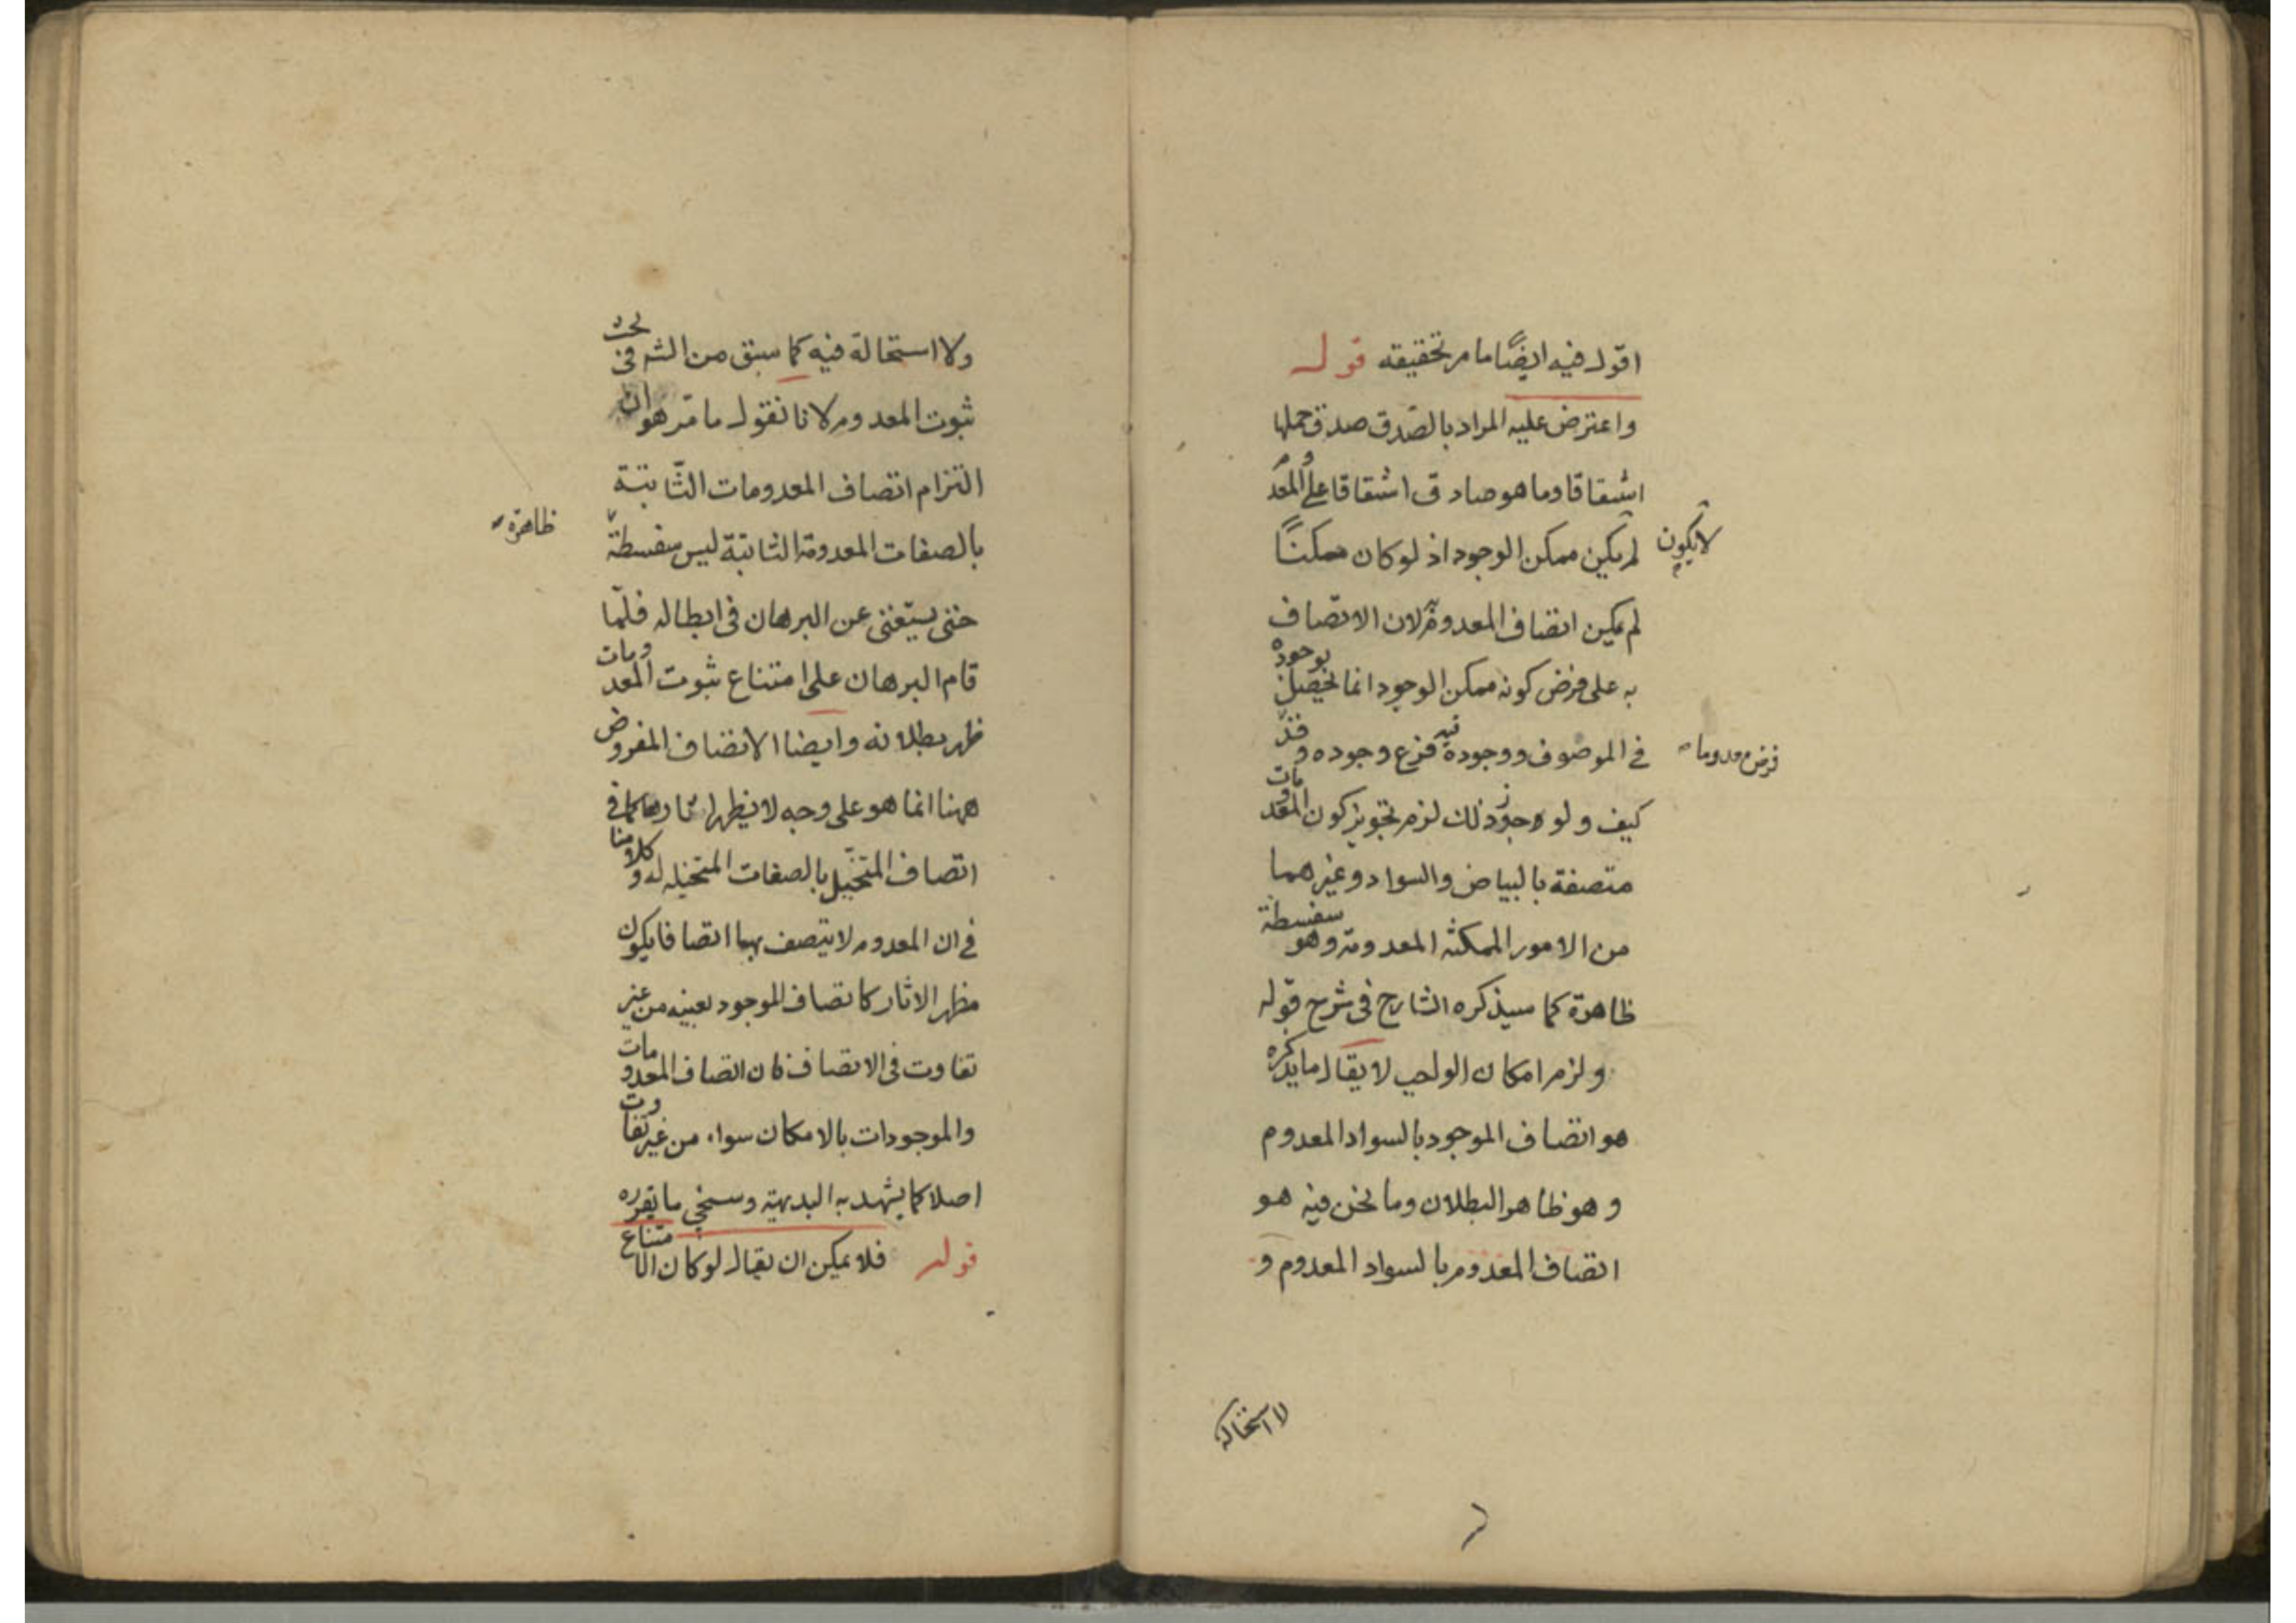 اقول فيه ايضًا ما مر تحقيقه قوله
واعترض عليه المراد بالصدق صدق حملها
اشتقاقا وما هو صادق اشتقاقا على المعدوم
لا يكون
لم يكن ممكن الوجود اذ لو كان ممكنًا
لم يكن اتصاف المعدوم به لان الاتصاف
به على فرض كونه ممكن الوجود انما يحصل بوجوده
في الموصوف ووجوده فيه فرع وجوده وقد
فرض معدوما
كيف ولو جوز ذلك لزم تجويز كون المعدومات
متصفة بالبياض والسواد وغيرهما
من الامور الممكنة المعدومة وهو سفسطة
ظاهرة كما سيذكره الشارح في شرح قوله
ولزم امكان الواجب لا يقال ما يذكره
هو اتصاف الموجود بالسواد المعدوم
وهو ظاهر البطلان وما نحن فيه هو
اتصاف المعدوم بالسواد المعدوم و
لا استحالة
ولا استحالة فيه كما سبق من الشه في بحث
ثبوت المعدوم لانا نقول ما مر هو ان
التزام اتصاف المعدومات الثّابتة
بالصفات المعدومة الثابتة ليس سفسطة
ظاهرة
حتى يستغنى عن البرهان في ابطاله فلمّا
قام البرهان على امتناع ثبوت المعدومات
ظهر بطلانه وايضا الاتصاف المفروض
ههنا انما هو على وجه لا يظهر اثارها كما في
اتصاف المتخيّل بالصفات المتخيله له وكلامنا
في ان المعدوم لا يتصف بها اتصافا يكون
مظهر الاثار كاتصاف الموجود بعينه من غير
تفاوت في الاتصاف فان اتصاف المعدومات
والموجودات بالامكان سواء من غير تفاوت
اصلا كما يشهد به البديهة وسيجي ما يقرره
قوله فلا يمكن ان يقال لو كان الامتناع